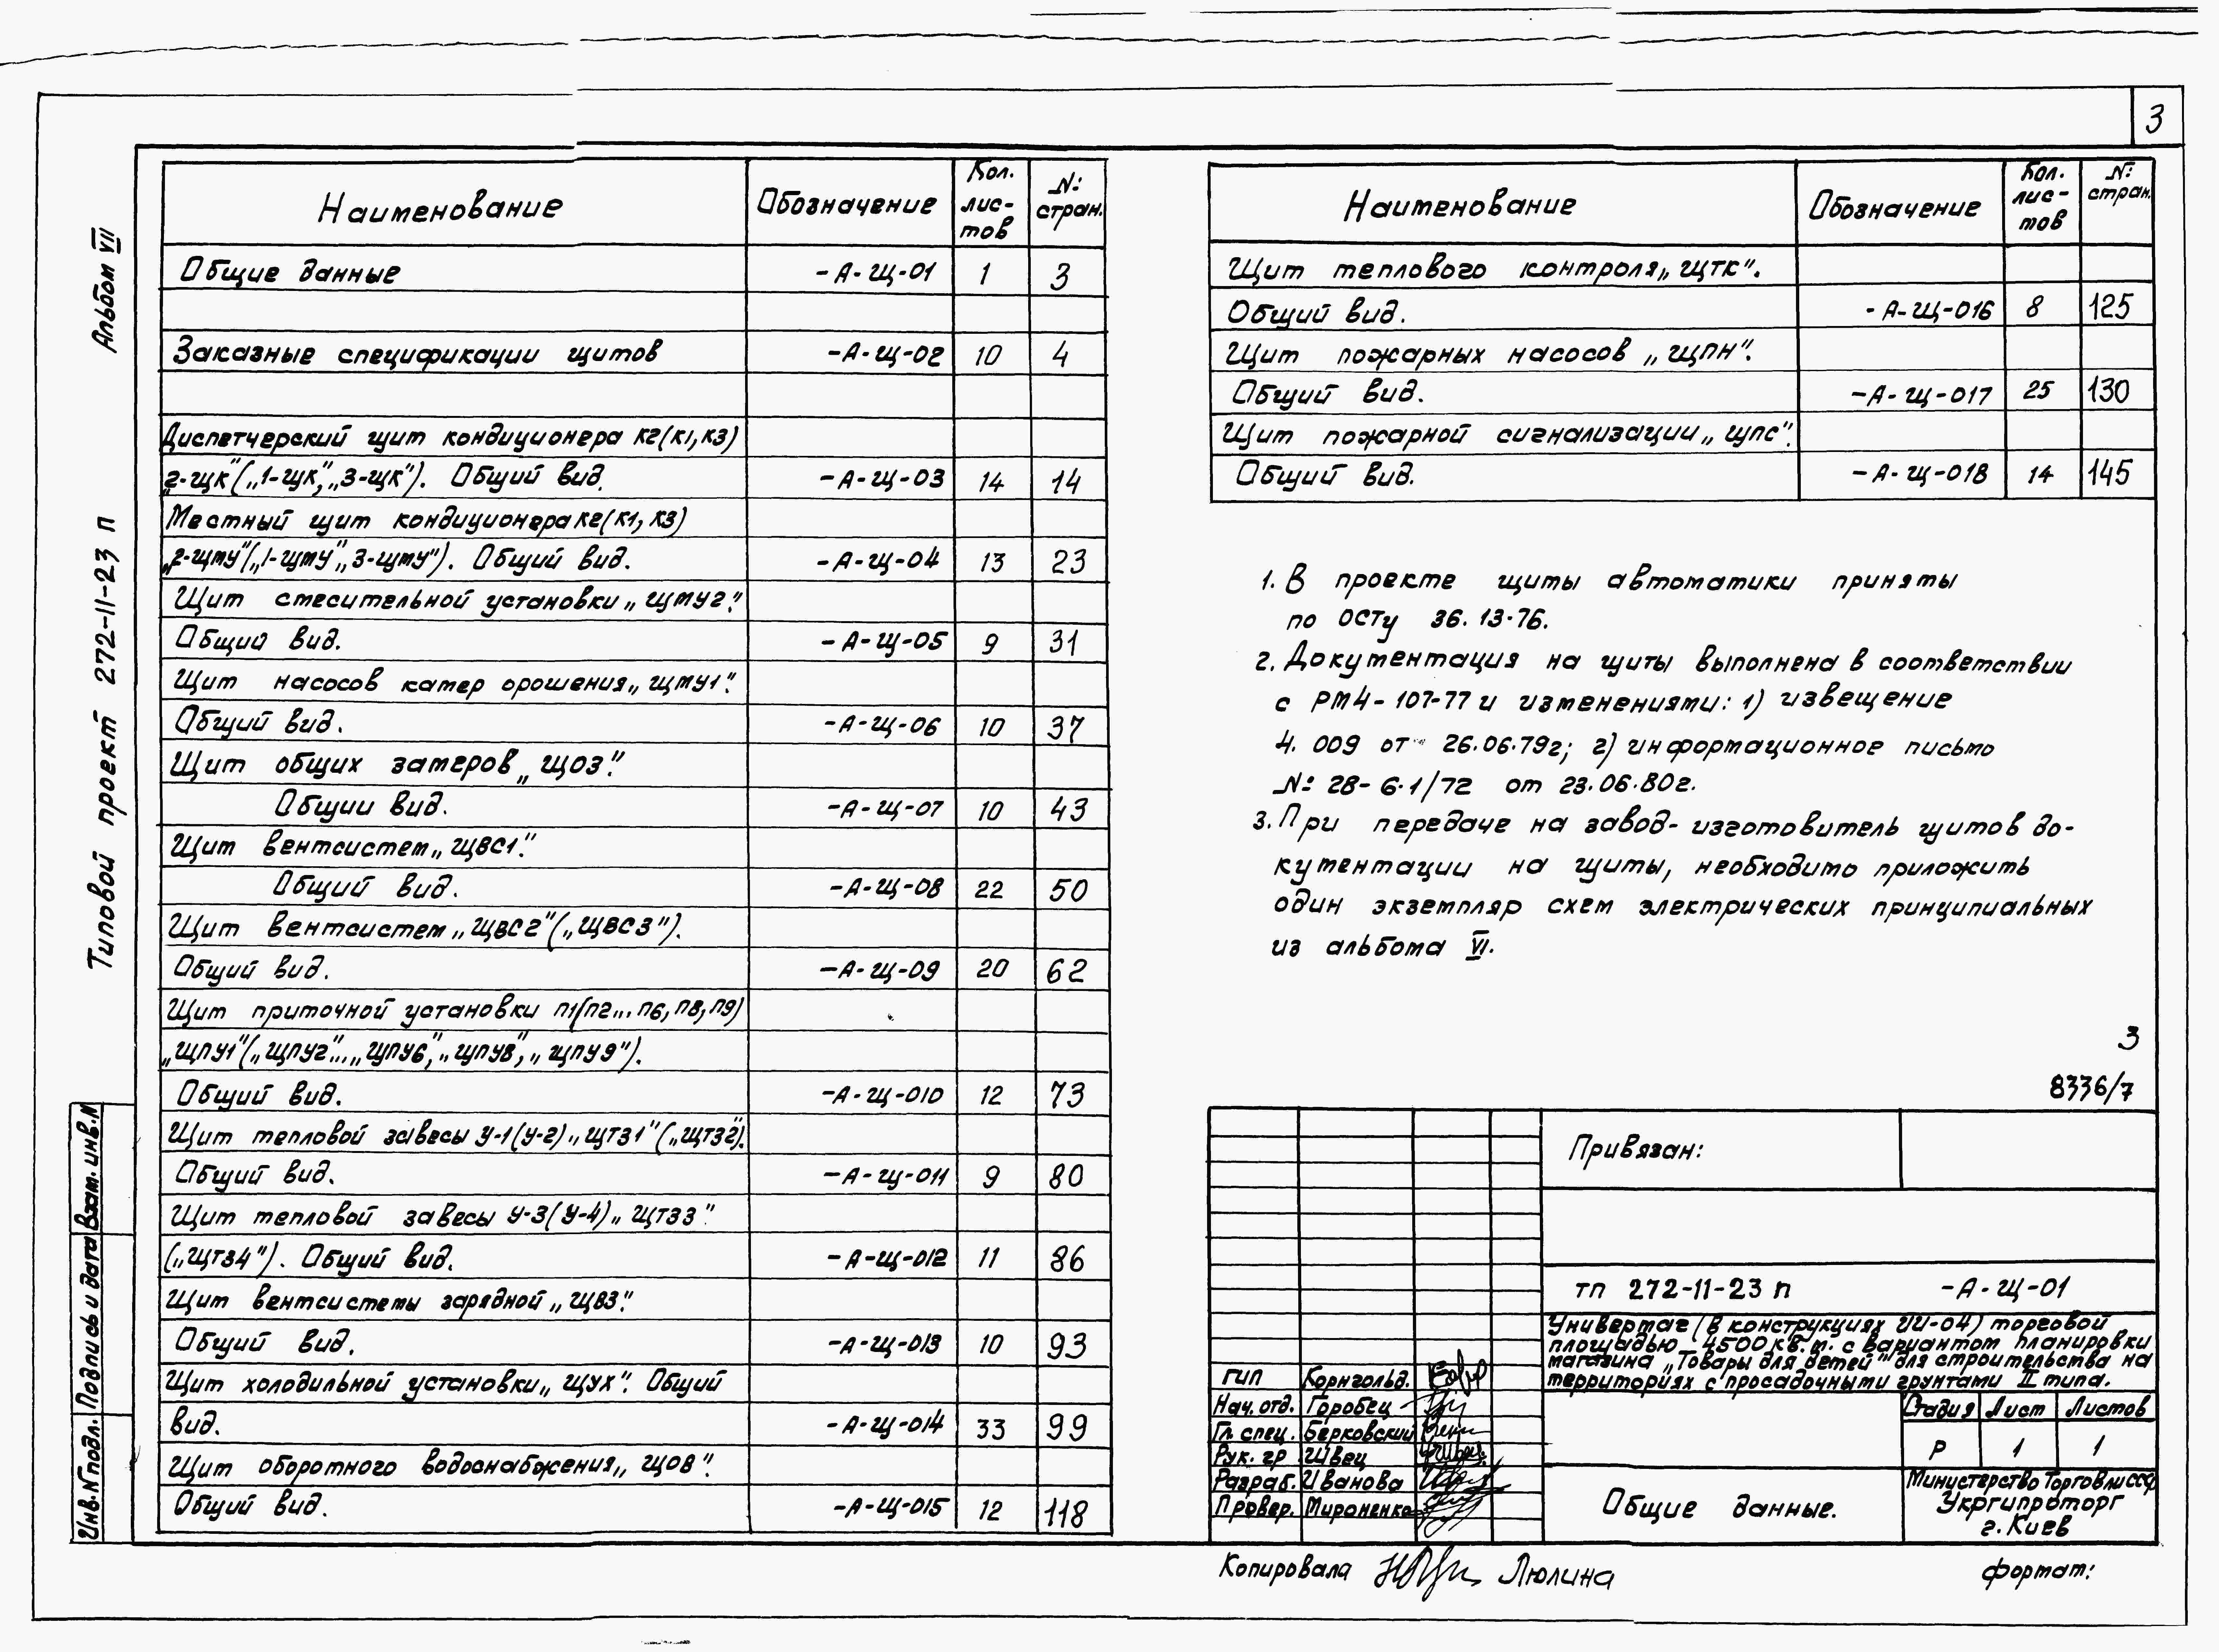 3
Альбом VII
Типовой проект 272-11-23 п
Взам. инв. N
Подпись и дата
Инв. N подл.
Наименование | Обозначение | Кол. лис-тов | №: стран.
Общие данные | -А-Щ-01 | 1 | 3
Заказные спецификации щитов | -А-Щ-02 | 10 | 4
Диспетчерский щит кондиционера К2(К1,К3)
„2-ЩК"(„1-ЩК", „3-ЩК"). Общий вид. | -А-Щ-03 | 14 | 14
Местный щит кондиционера К2(К1, К3)
„2-ЩМУ"(„1-ЩМУ", „3-ЩМУ"). Общий вид. | -А-Щ-04 | 13 | 23
Щит смесительной установки „ЩМУ2".
Общий вид. | -А-Щ-05 | 9 | 31
Щит насосов камер орошения „ЩМУ1".
Общий вид. | -А-Щ-06 | 10 | 37
Щит общих замеров „ЩОЗ".
Общии вид. | -А-Щ-07 | 10 | 43
Щит вентсистем „ЩВС1".
Общий вид. | -А-Щ-08 | 22 | 50
Щит вентсистем „ЩВС2"(„ЩВС3").
Общий вид. | -А-Щ-09 | 20 | 62
Щит приточной установки П1(П2... П6, П8, П9)
„ЩПУ1"(„ЩПУ2"... „ЩПУ6", „ЩПУ8", „ЩПУ9").
Общий вид. | -А-Щ-010 | 12 | 73
Щит тепловой завесы У-1(У-2) „ЩТЗ1"(„ЩТЗ2").
Общий вид. | -А-Щ-011 | 9 | 80
Щит тепловой завесы У-3(У-4) „ЩТЗ3"
(„ЩТЗ4"). Общий вид. | -А-Щ-012 | 11 | 86
Щит вентсистемы зарядной „ЩВЗ".
Общий вид. | -А-Щ-013 | 10 | 93
Щит холодильной установки „ЩУХ". Общий
вид. | -А-Щ-014 | 33 | 99
Щит оборотного водоснабжения „ЩОВ".
Общий вид. | -А-Щ-015 | 12 | 118
Наименование | Обозначение | Кол. лис-тов | №: стран.
Щит теплового контроля „ЩТК".
Общий вид. | -А-Щ-016 | 8 | 125
Щит пожарных насосов „ЩПН".
Общий вид. | -А-Щ-017 | 25 | 130
Щит пожарной сигнализации „ЩПС".
Общий вид. | -А-Щ-018 | 14 | 145
1. В проекте щиты автоматики приняты
по ОСТу 36.13-76.
2. Документация на щиты выполнена в соответствии
с РМ4-107-77 и изменениями: 1) извещение
4.009 от 26.06.79г; 2) информационное письмо
№: 28-6.1/72 от 23.06.80г.
3. При передаче на завод-изготовитель щитов до-
кументации на щиты, необходимо приложить
один экземпляр схем электрических принципиальных
из альбома VI.
3
8336/7
Привязан:
ТП 272-11-23 п -А-Щ-01
Универмаг (в конструкциях ИИ-04) торговой
площадью 4500 кв.м. с вариантом планировки
магазина „Товары для детей" для строительства на
территориях с просадочными грунтами II типа.
ГИП Корнгольд.
Нач. отд. Горобец
Гл. спец. Берковский
Рук. гр Швец
Разраб. Иванова
Провер. Мироненко
Стадия | Лист | Листов
Р | 1 | 1
Общие данные.
Министерство Торговли СССР
Укргипроторг
г. Киев
Копировала Люлина
формат: